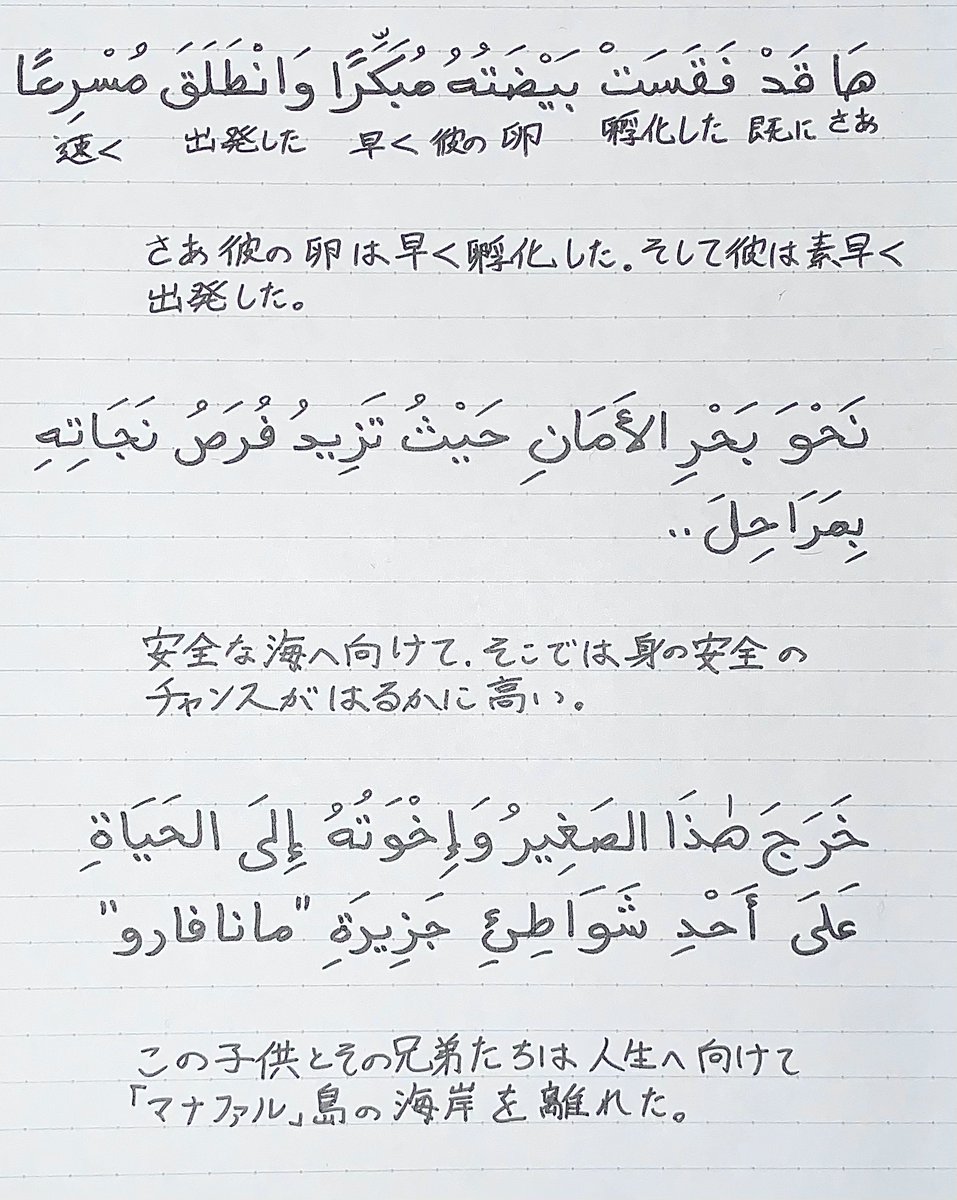 هَا قَدْ فَقَسَتْ بَيْضَتُهُ مُبَكِّرًا وَانْطَلَقَ مُسْرِعًا
速く 出発した 早く 彼の 卵 孵化した 既に さあ
さあ彼の卵は早く孵化した。そして彼は素早く
出発した。
نَحْوَ بَحْرِ الأَمَانِ حَيْثُ تَزِيدُ فُرَصُ نَجَاتِهِ
بِمَرَاحِلَ..
安全な海へ向けて。そこでは身の安全の
チャンスがはるかに高い。
خَرَجَ هٰذَا الصَغِيرُ وَإِخْوَتُهُ إِلىَ الحَيَاةِ
عَلىَ أَحْدِ شَوَاطِئِ جَزِيرَةِ "مانافارو"
この子供とその兄弟たちは人生へ向けて
「マナファル」島の海岸を離れた。